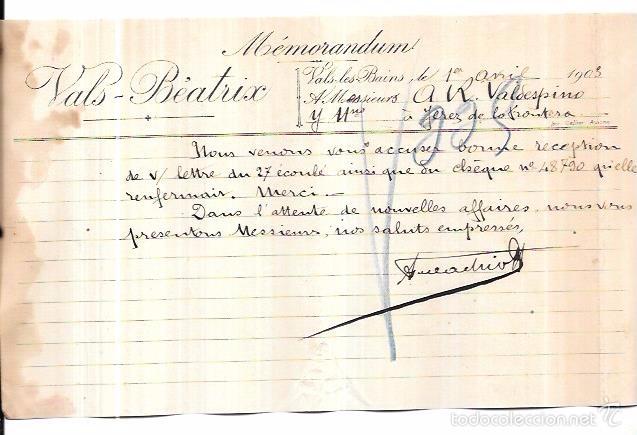 Mémorandum
Vals-Béatrix
Vals-les-Bains, le 1er avril 1903
A Messieurs A R. Valdespino
Y Hno à Jerez de la Frontera
Nous venons vous accuser bonne reception
de v/ lettre du 27 écoulé ainsi que du chèque nº 48790 qu'elle
renfermait. Merci.—
Dans l'attente de nouvelles affaires, nous vous
presentons Messieurs, nos saluts empressés,
todocoleccion.net